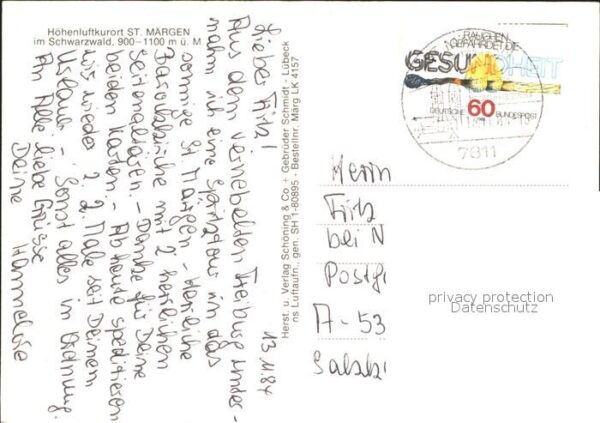 Höhenluftkurort ST. MÄRGEN
im Schwarzwald, 900–1100 m ü. M
13.11.84
Lieber Fritz!
Aus dem vernebelten Freiburg unter-
nahm ich eine Spritztour in das
sonnige St. Märgen - Herrliche
Barockkirche mit 2 herrlichen
Seitenaltären. - Danke für Deine
beiden Karten. - Ab heute spedieren
wir wieder 2. 2. Male seit Deinem
Urlaub - Sonst alles in Ordnung.
An Alle liebe Grüsse
Deine
Hannelore
Herst. u. Verlag Schöning & Co + Gebrüder Schmidt - Lübeck
ns Luftaufn., gen. SH 1-80895 - Bestellnr. Märg LK 4157
RAUCHEN
GEFÄHRDET DIE
GESUNDHEIT
DEUTSCHE 60 BUNDESPOST
7811
Herrn
Fritz
bei N
Postf
A-53
Salzb
privacy protection
Datenschutz